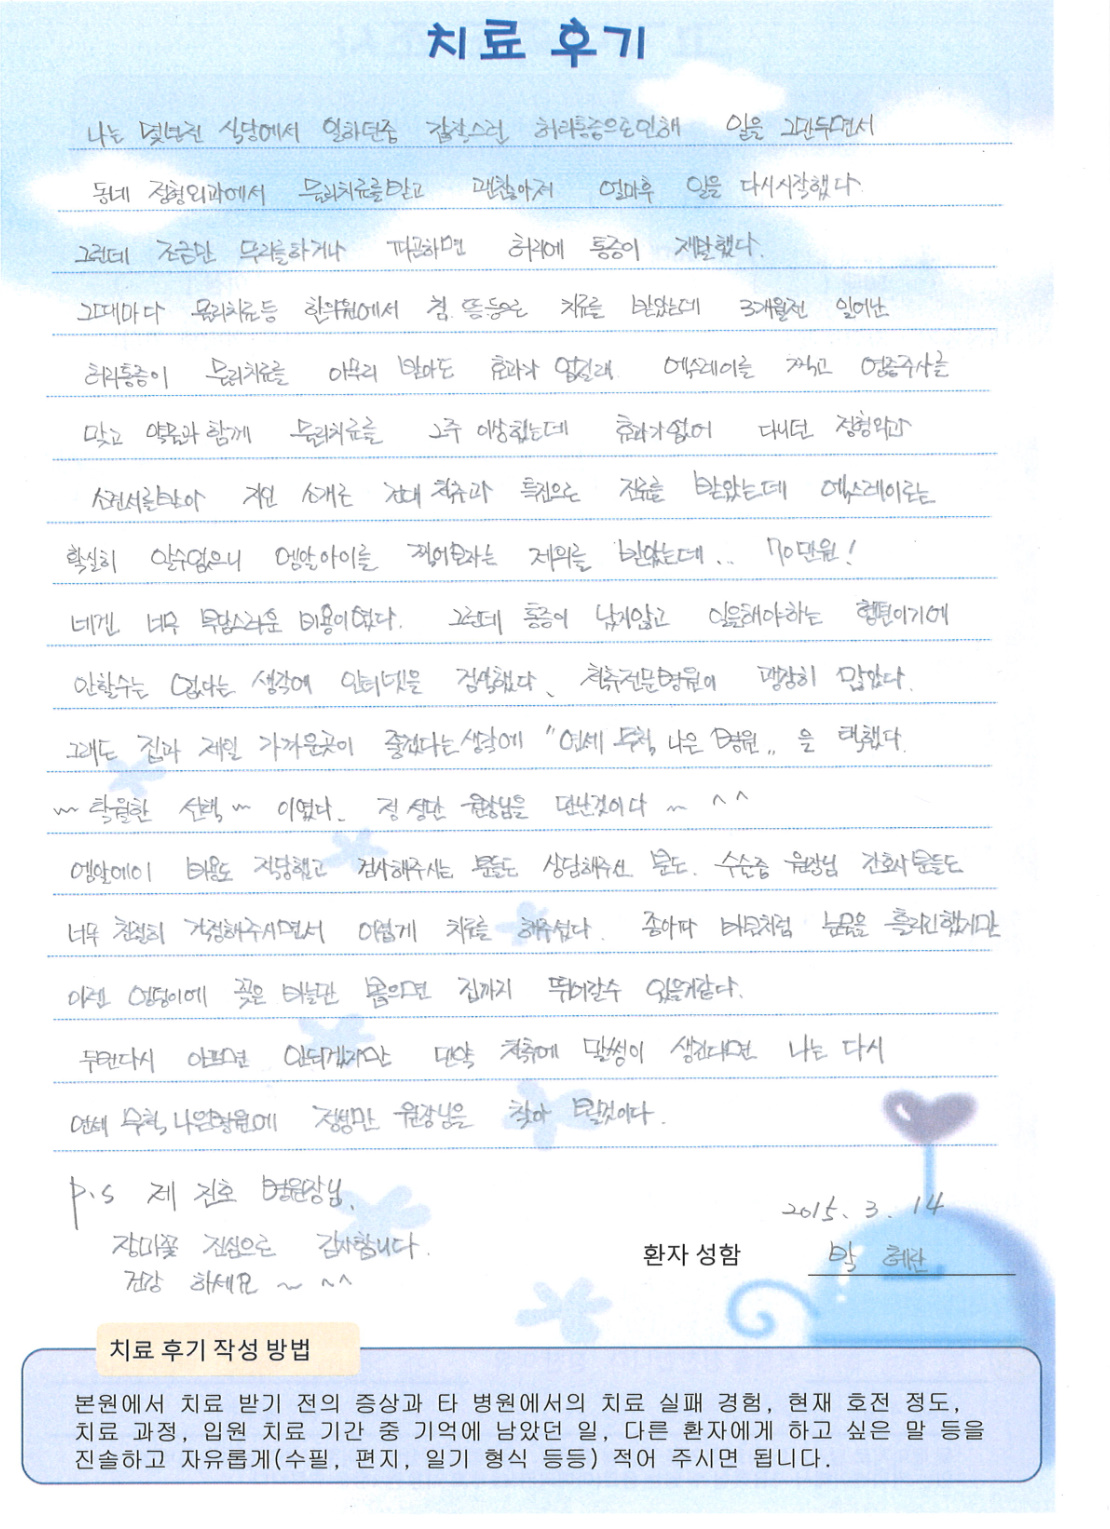 치료 후기
나는 몇년전 식당에서 일하던중 갑작스런 허리통증으로인해 일을 그만두면서
동네 정형외과에서 물리치료를받고 괜찮아져 얼마후 일을 다시시작했다
그런데 조금만 무리를하거나 피곤하면 허리에 통증이 재발했다.
그때마다 물리치료등 한의원에서 침. 뜸등으로 치료를 받았는데 3개월전 일어난
허리통증이 물리치료를 아무리 받아도 효과가 없길래 엑스레이를 찍고 염증주사를
맞고 약물과 함께 물리치료를 2주 이상했는데 효과가없어 다니던 정형외과
소견서를받아 지인 소개로 건대 척추과 특진으로 진료를 받았는데 엑스레이로는
확실히 알수없으니 엠알아이를 찍어보자는 제의를 받았는데... 70만원!
네겐 너무 부담스러운 비용이였다. 그런데 통증이 낫지않고 일을해야하는 형편이기에
안할수는 없다는 생각에 인터넷을 검색했다. 척추전문병원이 굉장히 많았다.
그래도 집과 제일 가까운곳이 좋겠다는생각에 "연세 무척 나은 병원" 을 택했다.
~ 탁월한 선택 ~ 이였다. 정 성만 원장님을 만난것이다 ~ ^^
엠알에이 비용도 적당했고 검사해주시는 분들도 상담해주신 분도. 수술중 원장님 간호사분들도
너무 친절히 걱정해주시면서 어렵게 치료를 해주셨다. 좋아따 바보처럼 눈물을 흘리긴했지만
이젠 엉덩이에 꽂은 바늘만 뽑으면 집까지 뛰어갈수 있을거같다.
두번다시 아프면 안되겠지만 만약 척추에 말썽이 생긴다면 나는 다시
연세 무척 나은병원에 정성만 원장님을 찾아 뵐것이다.
P.S 제 진호 병원장님.
장미꽃 진심으로 감사합니다.
건강 하세요 ~ ^^
2015. 3. 14
환자 성함 박 혜란
치료 후기 작성 방법
본원에서 치료 받기 전의 증상과 타 병원에서의 치료 실패 경험, 현재 호전 정도,
치료 과정, 입원 치료 기간 중 기억에 남았던 일, 다른 환자에게 하고 싶은 말 등을
진솔하고 자유롭게(수필, 편지, 일기 형식 등등) 적어 주시면 됩니다.